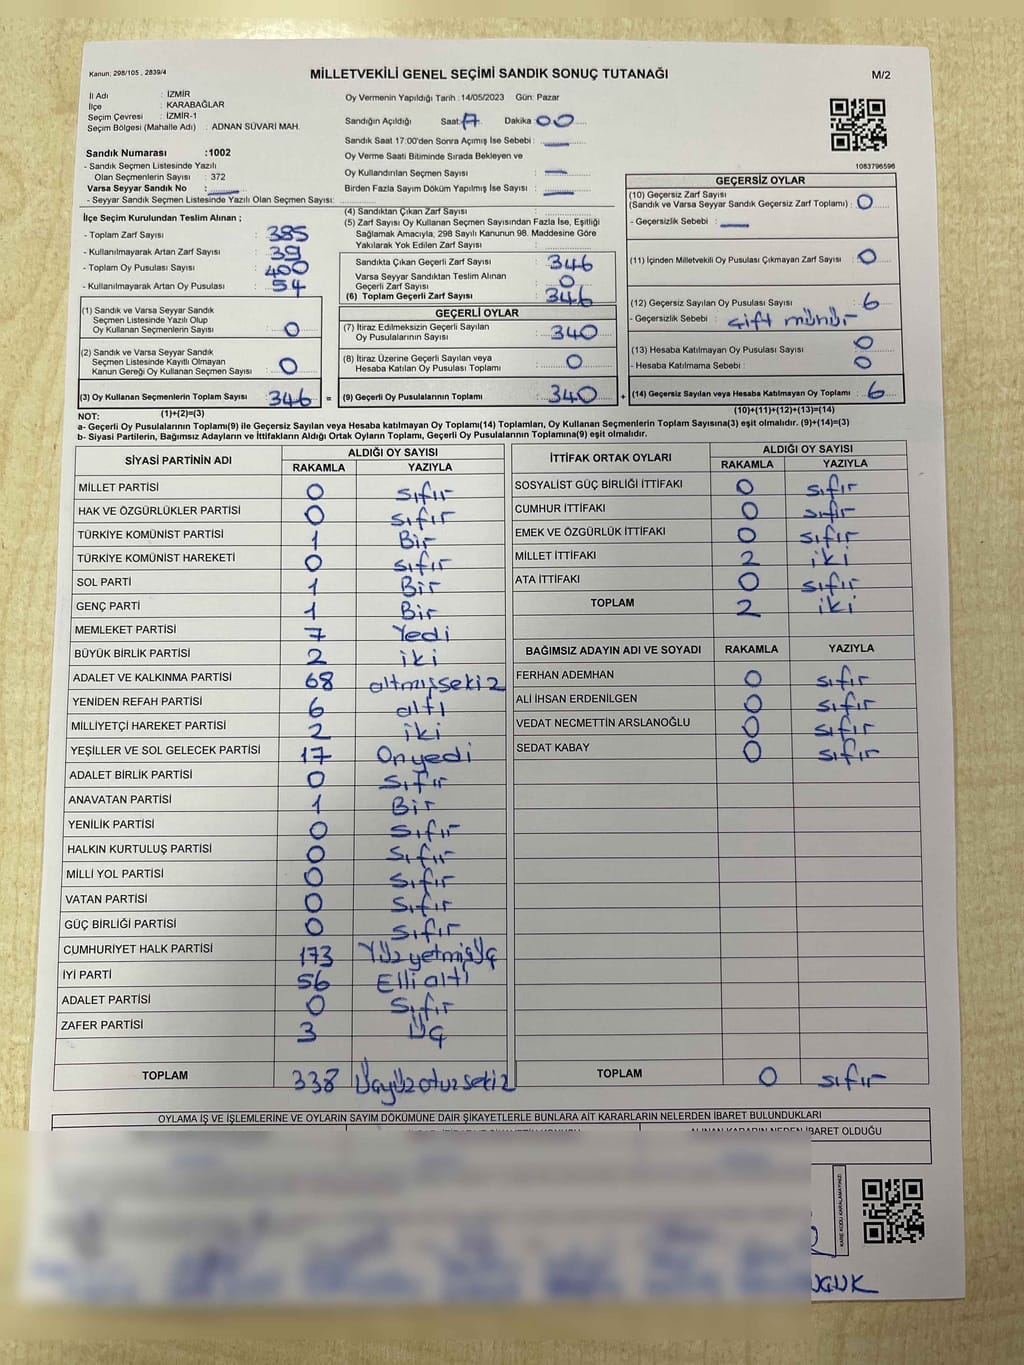 Kanun: 298/105 , 2839/4
MİLLETVEKİLİ GENEL SEÇİMİ SANDIK SONUÇ TUTANAĞI
M/2
İl Adı : İZMİR
İlçe : KARABAĞLAR
Seçim Çevresi : İZMİR-1
Seçim Bölgesi (Mahalle Adı) : ADNAN SÜVARİ MAH.
Sandık Numarası :1002
- Sandık Seçmen Listesinde Yazılı
Olan Seçmenlerin Sayısı : 372
Varsa Seyyar Sandık No :
- Seyyar Sandık Seçmen Listesinde Yazılı Olan Seçmen Sayısı:
Oy Vermenin Yapıldığı Tarih : 14/05/2023 Gün: Pazar
Sandığın Açıldığı Saat: 17 Dakika 00
Sandık Saat 17:00'den Sonra Açımış İse Sebebi :
Oy Verme Saati Bitiminde Sırada Bekleyen ve
Oy Kullandırılan Seçmen Sayısı :
Birden Fazla Sayım Döküm Yapılmış İse Sayısı :
1083796596
İlçe Seçim Kurulundan Teslim Alınan ;
- Toplam Zarf Sayısı : 385
- Kullanılmayarak Artan Zarf Sayısı : 39
- Toplam Oy Pusulası Sayısı : 400
- Kullanılmayarak Artan Oy Pusulası : 54
(1) Sandık ve Varsa Seyyar Sandık
Seçmen Listesinde Yazılı Olup
Oy Kullanan Seçmenlerin Sayısı : 0
(2) Sandık ve Varsa Seyyar Sandık
Seçmen Listesinde Kayıtlı Olmayan
Kanun Gereği Oy Kullanan Seçmen Sayısı : 0
(3) Oy Kullanan Seçmenlerin Toplam Sayısı : 346
(1)+(2)=(3)
(4) Sandıktan Çıkan Zarf Sayısı :
(5) Zarf Sayısı Oy Kullanan Seçmen Sayısından Fazla İse, Eşitliği
Sağlamak Amacıyla, 298 Sayılı Kanunun 98. Maddesine Göre
Yakılarak Yok Edilen Zarf Sayısı :
Sandıkta Çıkan Geçerli Zarf Sayısı : 346
Varsa Seyyar Sandıktan Teslim Alınan
Geçerli Zarf Sayısı : 0
(6) Toplam Geçerli Zarf Sayısı : 346
GEÇERLİ OYLAR
(7) İtiraz Edilmeksizin Geçerli Sayılan
Oy Pusulalarının Sayısı : 340
(8) İtiraz Üzerine Geçerli Sayılan veya
Hesaba Katılan Oy Pusulası Toplamı : 0
= (9) Geçerli Oy Pusulalarının Toplamı : 340
GEÇERSİZ OYLAR
(10) Geçersiz Zarf Sayısı
(Sandık ve Varsa Seyyar Sandık Geçersiz Zarf Toplamı) : 0
- Geçersizlik Sebebi :
(11) İçinden Milletvekili Oy Pusulası Çıkmayan Zarf Sayısı : 0
(12) Geçersiz Sayılan Oy Pusulası Sayısı : 6
- Geçersizlik Sebebi : çift mühür
(13) Hesaba Katılmayan Oy Pusulası Sayısı : 0
- Hesaba Katılmama Sebebi : 0
+ (14) Geçersiz Sayılan veya Hesaba Katılmayan Oy Toplamı : 6
(10)+(11)+(12)+(13)=(14)
NOT:
a- Geçerli Oy Pusulalarının Toplamı(9) ile Geçersiz Sayılan veya Hesaba Katılmayan Oy Toplamı(14) Toplamları, Oy Kullanan Seçmenlerin Toplam Sayısına(3) eşit olmalıdır. (9)+(14)=(3)
b- Siyasi Partilerin, Bağımsız Adayların ve İttifakların Aldığı Ortak Oyların Toplamı, Geçerli Oy Pusulalarının Toplamına(9) eşit olmalıdır.
SİYASİ PARTİNİN ADI ALDIĞI OY SAYISI
RAKAMLA YAZIYLA
MİLLET PARTİSİ 0 sıfır
HAK VE ÖZGÜRLÜKLER PARTİSİ 0 sıfır
TÜRKİYE KOMÜNİST PARTİSİ 1 Bir
TÜRKİYE KOMÜNİST HAREKETİ 0 sıfır
SOL PARTİ 1 Bir
GENÇ PARTİ 1 Bir
MEMLEKET PARTİSİ 7 Yedi
BÜYÜK BİRLİK PARTİSİ 2 iki
ADALET VE KALKINMA PARTİSİ 68 altmışsekiz
YENİDEN REFAH PARTİSİ 6 altı
MİLLİYETÇİ HAREKET PARTİSİ 2 iki
YEŞİLLER VE SOL GELECEK PARTİSİ 17 Onyedi
ADALET BİRLİK PARTİSİ 0 sıfır
ANAVATAN PARTİSİ 1 Bir
YENİLİK PARTİSİ 0 sıfır
HALKIN KURTULUŞ PARTİSİ 0 sıfır
MİLLİ YOL PARTİSİ 0 sıfır
VATAN PARTİSİ 0 sıfır
GÜÇ BİRLİĞİ PARTİSİ 0 sıfır
CUMHURİYET HALK PARTİSİ 173 Yüzyetmişüç
İYİ PARTİ 56 Elli altı
ADALET PARTİSİ 0 sıfır
ZAFER PARTİSİ 3 üç
TOPLAM 338 Üçyüzotuzsekiz
İTTİFAK ORTAK OYLARI ALDIĞI OY SAYISI
RAKAMLA YAZIYLA
SOSYALİST GÜÇ BİRLİĞİ İTTİFAKI 0 sıfır
CUMHUR İTTİFAKI 0 sıfır
EMEK VE ÖZGÜRLÜK İTTİFAKI 0 sıfır
MİLLET İTTİFAKI 2 iki
ATA İTTİFAKI 0 sıfır
TOPLAM 2 iki
BAĞIMSIZ ADAYIN ADI VE SOYADI RAKAMLA YAZIYLA
FERHAN ADEMHAN 0 sıfır
ALİ İHSAN ERDENİLGEN 0 sıfır
VEDAT NECMETTİN ARSLANOĞLU 0 sıfır
SEDAT KABAY 0 sıfır
TOPLAM 0 sıfır
OYLAMA İŞ VE İŞLEMLERİNE VE OYLARIN SAYIM DÖKÜMÜNE DAİR ŞİKAYETLERLE BUNLARA AİT KARARLARIN NELERDEN İBARET BULUNDUKLARI
ALINAN KARARIN NEDEN İBARET OLDUĞU
KARE KODU KARALAMAYINIZ!